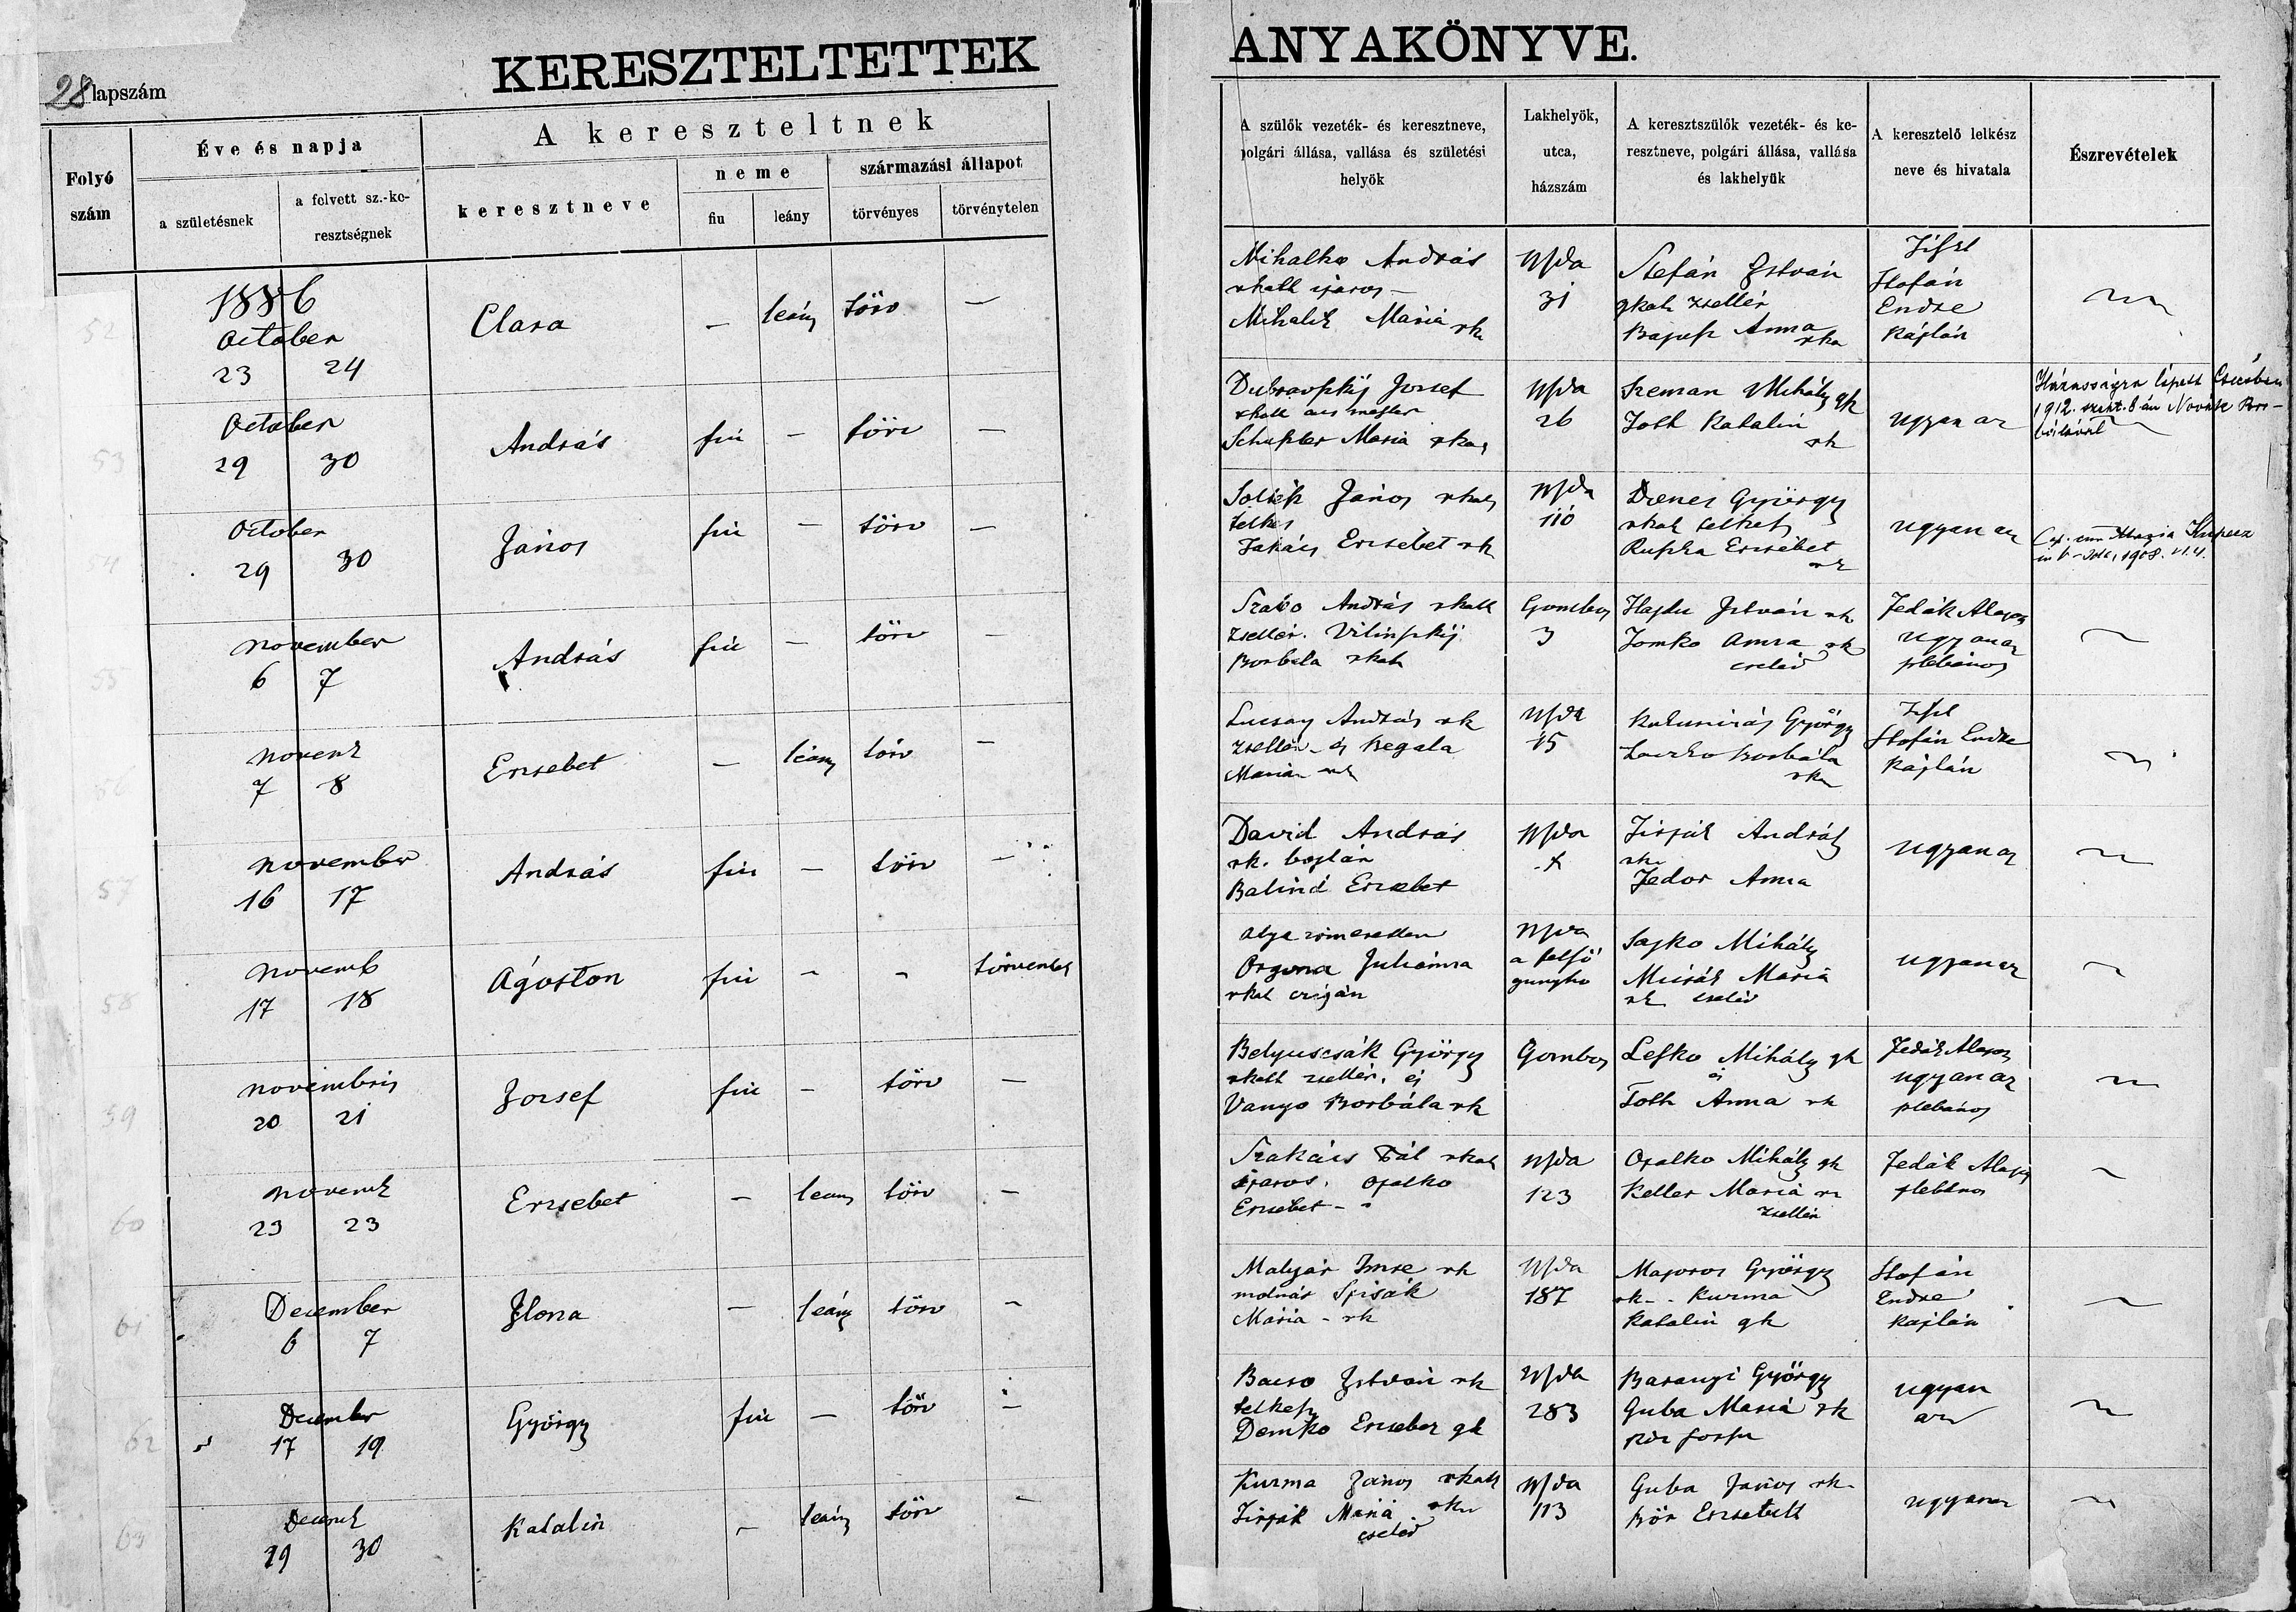 KERESZTELTETTEK ANYAKÖNYVE.
28 lapszám
Folyó szám
Éve és napja
a születésnek
a felvett sz.-keresztségnek
A kereszteltnek
keresztneve
neme
fiu
leány
származási állapot
törvényes
törvénytelen
A szülők vezeték- és keresztneve,
polgári állása, vallása és születési
helyök
Lakhelyök,
utca,
házszám
A keresztszülők vezeték- és ke-
resztneve, polgári állása, vallása
és lakhelyük
A keresztelő lelkész
neve és hivatala
Észrevételek
52
1886
October
23 24
Clara
— leány törv —
Mihalko András
rkath iparos —
Mihalik Maria rk
31
Stefán István
gkath zsellér
Anna rka
Stofán
Endre
Káplán
53
October
29 30
András
fiú — törv —
József
Maria rkath
26
Szeman Mihály gk
Toth Katalin
rk
ugyan az
1912. szept. 8-án Novák Bor-
bálával
54
October
29 30
János
fiú — törv —
János rkath
telkes
Takács Erzsebet rk
110
Dienes György
rkath telkes
Erzsébet
rk
ugyan az
1908.
55
November
6 7
András
fiú — törv —
Szabo András rkath
zsellér.
Borbala rkath
Gombos
3
Hajdu István rk
Tomko Anna rk
cseléd
Jedák Alajos
ugyanaz
plebános
56
Novemb
7 8
Erzsebet
— leány törv —
Lucsay András rk
zsellér és Regula
Maria rk
15
György
Laczko Borbála
rk
Stofán Endre
Káplán
57
November
16 17
András
fiú — törv —
David András
rk.
Balind Erzsebet
András
rk
Fedor Anna
ugyanaz
58
Novemb
17 18
Ágoston
fiú - - törvénytel
Atya ismeretlen
Orgona Juliánna
rkat czigán
a felső
gunyho
Sajko Mihály
Maria
rk cseléd
ugyanaz
59
Novembris
20 21
József
fiú — törv —
Belyuscsák György
rkath zsellér, és
Vanyo Borbála rk
Gombos
Lesko Mihály gk
és
Toth Anna rk
Jedák Alajos
ugyanaz
plebános
60
Novemb
23 23
Erzsebet
— leány törv —
Szakács Pál rkath
iparos. Opalko
Erzsebet —
123
Opalko Mihály gk
Keller Maria rk
zsellér
Jedák Alajos
plebános
61
December
6 7
Ilona
— leány törv —
Malyár Imre rk
molnár Spisák
Mária - rk
187
Majoros György
rk - Kurma
Katalin gk
Stofán
Endre
káplán
62
December
17 19
György
fiú — törv —
Bacso István rk
telkes
Demko Erzsebet gk
283
Baranyi György
Guba Maria rk
ugyan
az
63
Decemb
29 30
Katalin
— leány törv —
Kurma János rkath
Maria rk
cseléd
113
Guba János rk
Bör Erzsebeth
ugyanaz